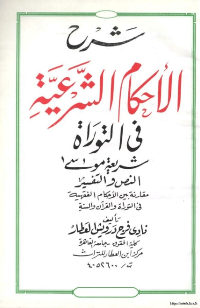 شرح
الأحكام الشرعية
في التوراة
شريعة موسى
النص والتفسير
مقارنة بين الأحكام الفقهية
في التوراة والقرآن والسنة
تأليف
نادي فرج درويش العطار
كلية الحقوق - جامعة القاهرة
مركز ابن العطار للتراث
ت/٤٠٥٢٦٠٠